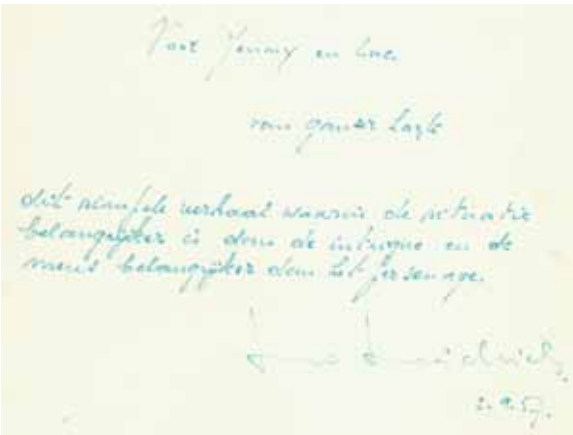 Voor Jenny en Luc
van ganser harte
dit simpele verhaal waarin de situatie
belangrijker is dan de intrigue en de
mens belangrijker dan het personage.
2.9.57.